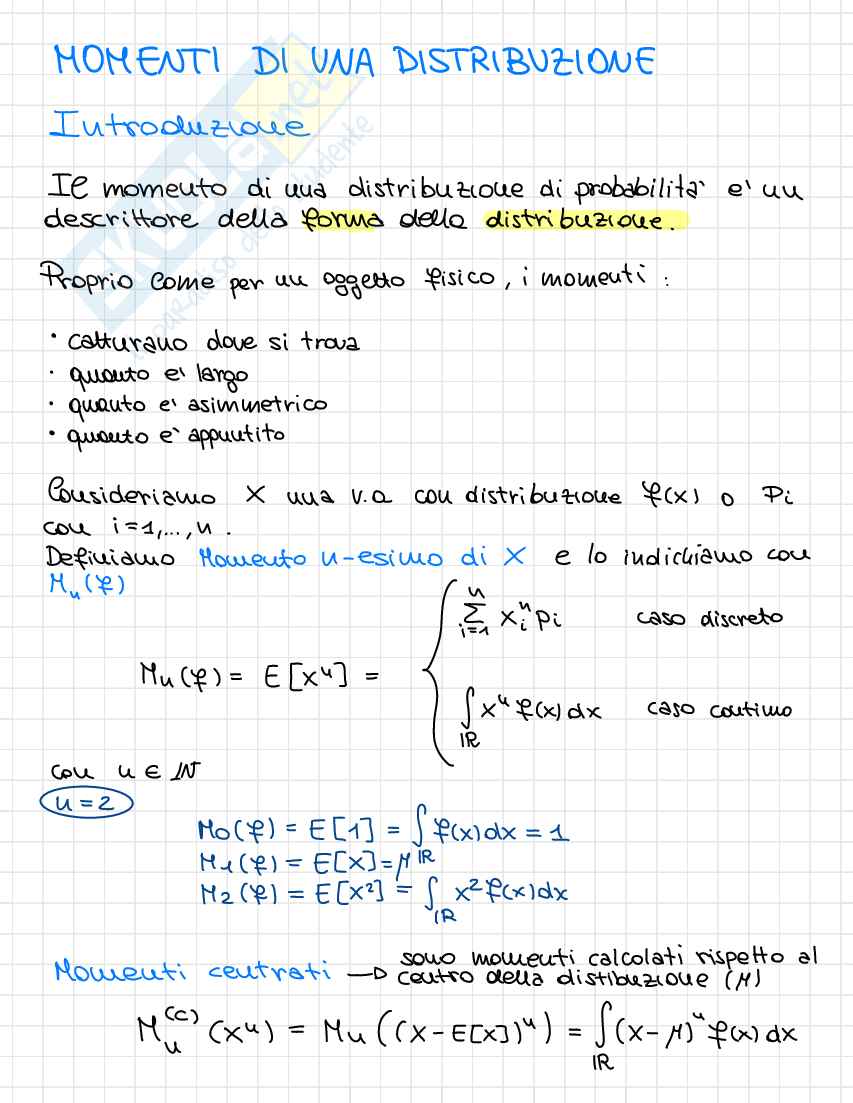 MOMENTI DI UNA DISTRIBUZIONE
Introduzione
Il momento di una distribuzione di probabilità è un
descrittore della forma della distribuzione.
Proprio come per un oggetto fisico, i momenti :
· catturano dove si trova
· quanto è largo
· quanto è asimmetrico
· quanto è appuntito
Consideriamo X una v.a con distribuzione f(x) o Pi
con i=1,...,n.
Definiamo Momento n-esimo di X e lo indichiamo con
Mn(f)
Mn(f) = E[xⁿ] = { ∑ᵢ₌₁ⁿ xᵢⁿ pi caso discreto
∫_ℝ xⁿ f(x) dx caso continuo
con n ∈ ℕ
n = 2
M0(f) = E[1] = ∫_ℝ f(x) dx = 1
M1(f) = E[x] = μ
M2(f) = E[x²] = ∫_ℝ x² f(x) dx
Momenti centrati → sono momenti calcolati rispetto al
centro della distibuzione (μ)
Mn⁽ᶜ⁾(xⁿ) = Mn((x-E[x])ⁿ) = ∫_ℝ (x-μ)ⁿ f(x) dx